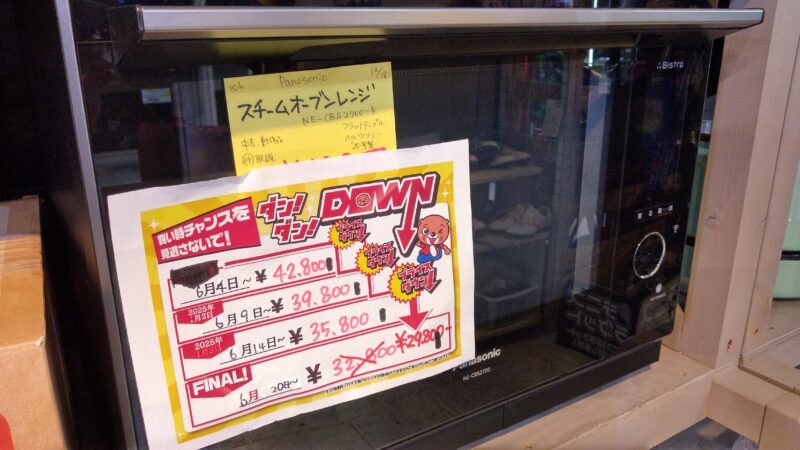 106 Panasonic 12/18
スチームオーブンレンジ
NE-CBS2700-K
中古 動作品
フラットテーブル
ヘルツフリー
20年製
取説
Bistro
買い時チャンスを
見逃さないで!
ダン!
ダン!
DOWN
プライス
ダウン!
プライス
ダウン!
プライス
ダウン!
6月4日~ ¥ 42.800
2025年
6月9日~ ¥ 39.800
2025年
6月14日~ ¥ 35.800
FINAL!
6月 20日~ ¥ 32.800 ¥29.800-
Panasonic
NE-CBS2700